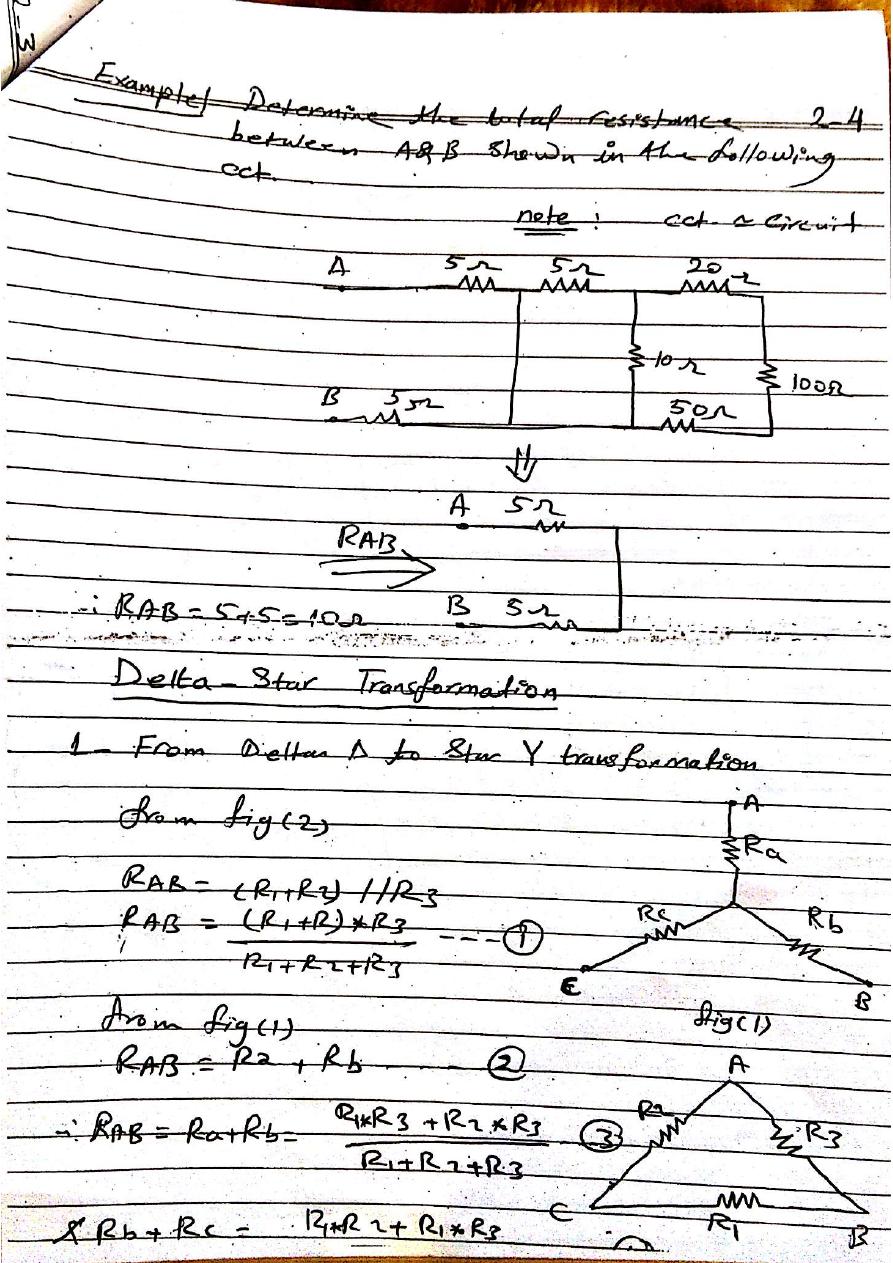 Example/ Determine the total resistance 2-4
between A&B shown in the following
cct.
note : cct. ≈ circuit
A 5Ω 5Ω 20Ω
10Ω
100Ω
B 5Ω 50Ω
⇓
A 5Ω
RAB
∴ RAB = 5+5 = 10Ω B 5Ω
Delta-Star Transformation
1- From Delta Δ to Star Y transformation
A
from fig(2)
Ra
RAB = (R1+R2) // R3
RAB = (R1+R2)*R3 / R1+R2+R3 ---- ①
Rc Rb
C B
from fig(1) fig(1)
RAB = Ra + Rb ---- ②
A
∴ RAB = Ra+Rb = R1*R3 + R2*R3 / R1+R2+R3 ③
R2 R3
C R1 B
& Rb + Rc = R1*R2 + R1*R3